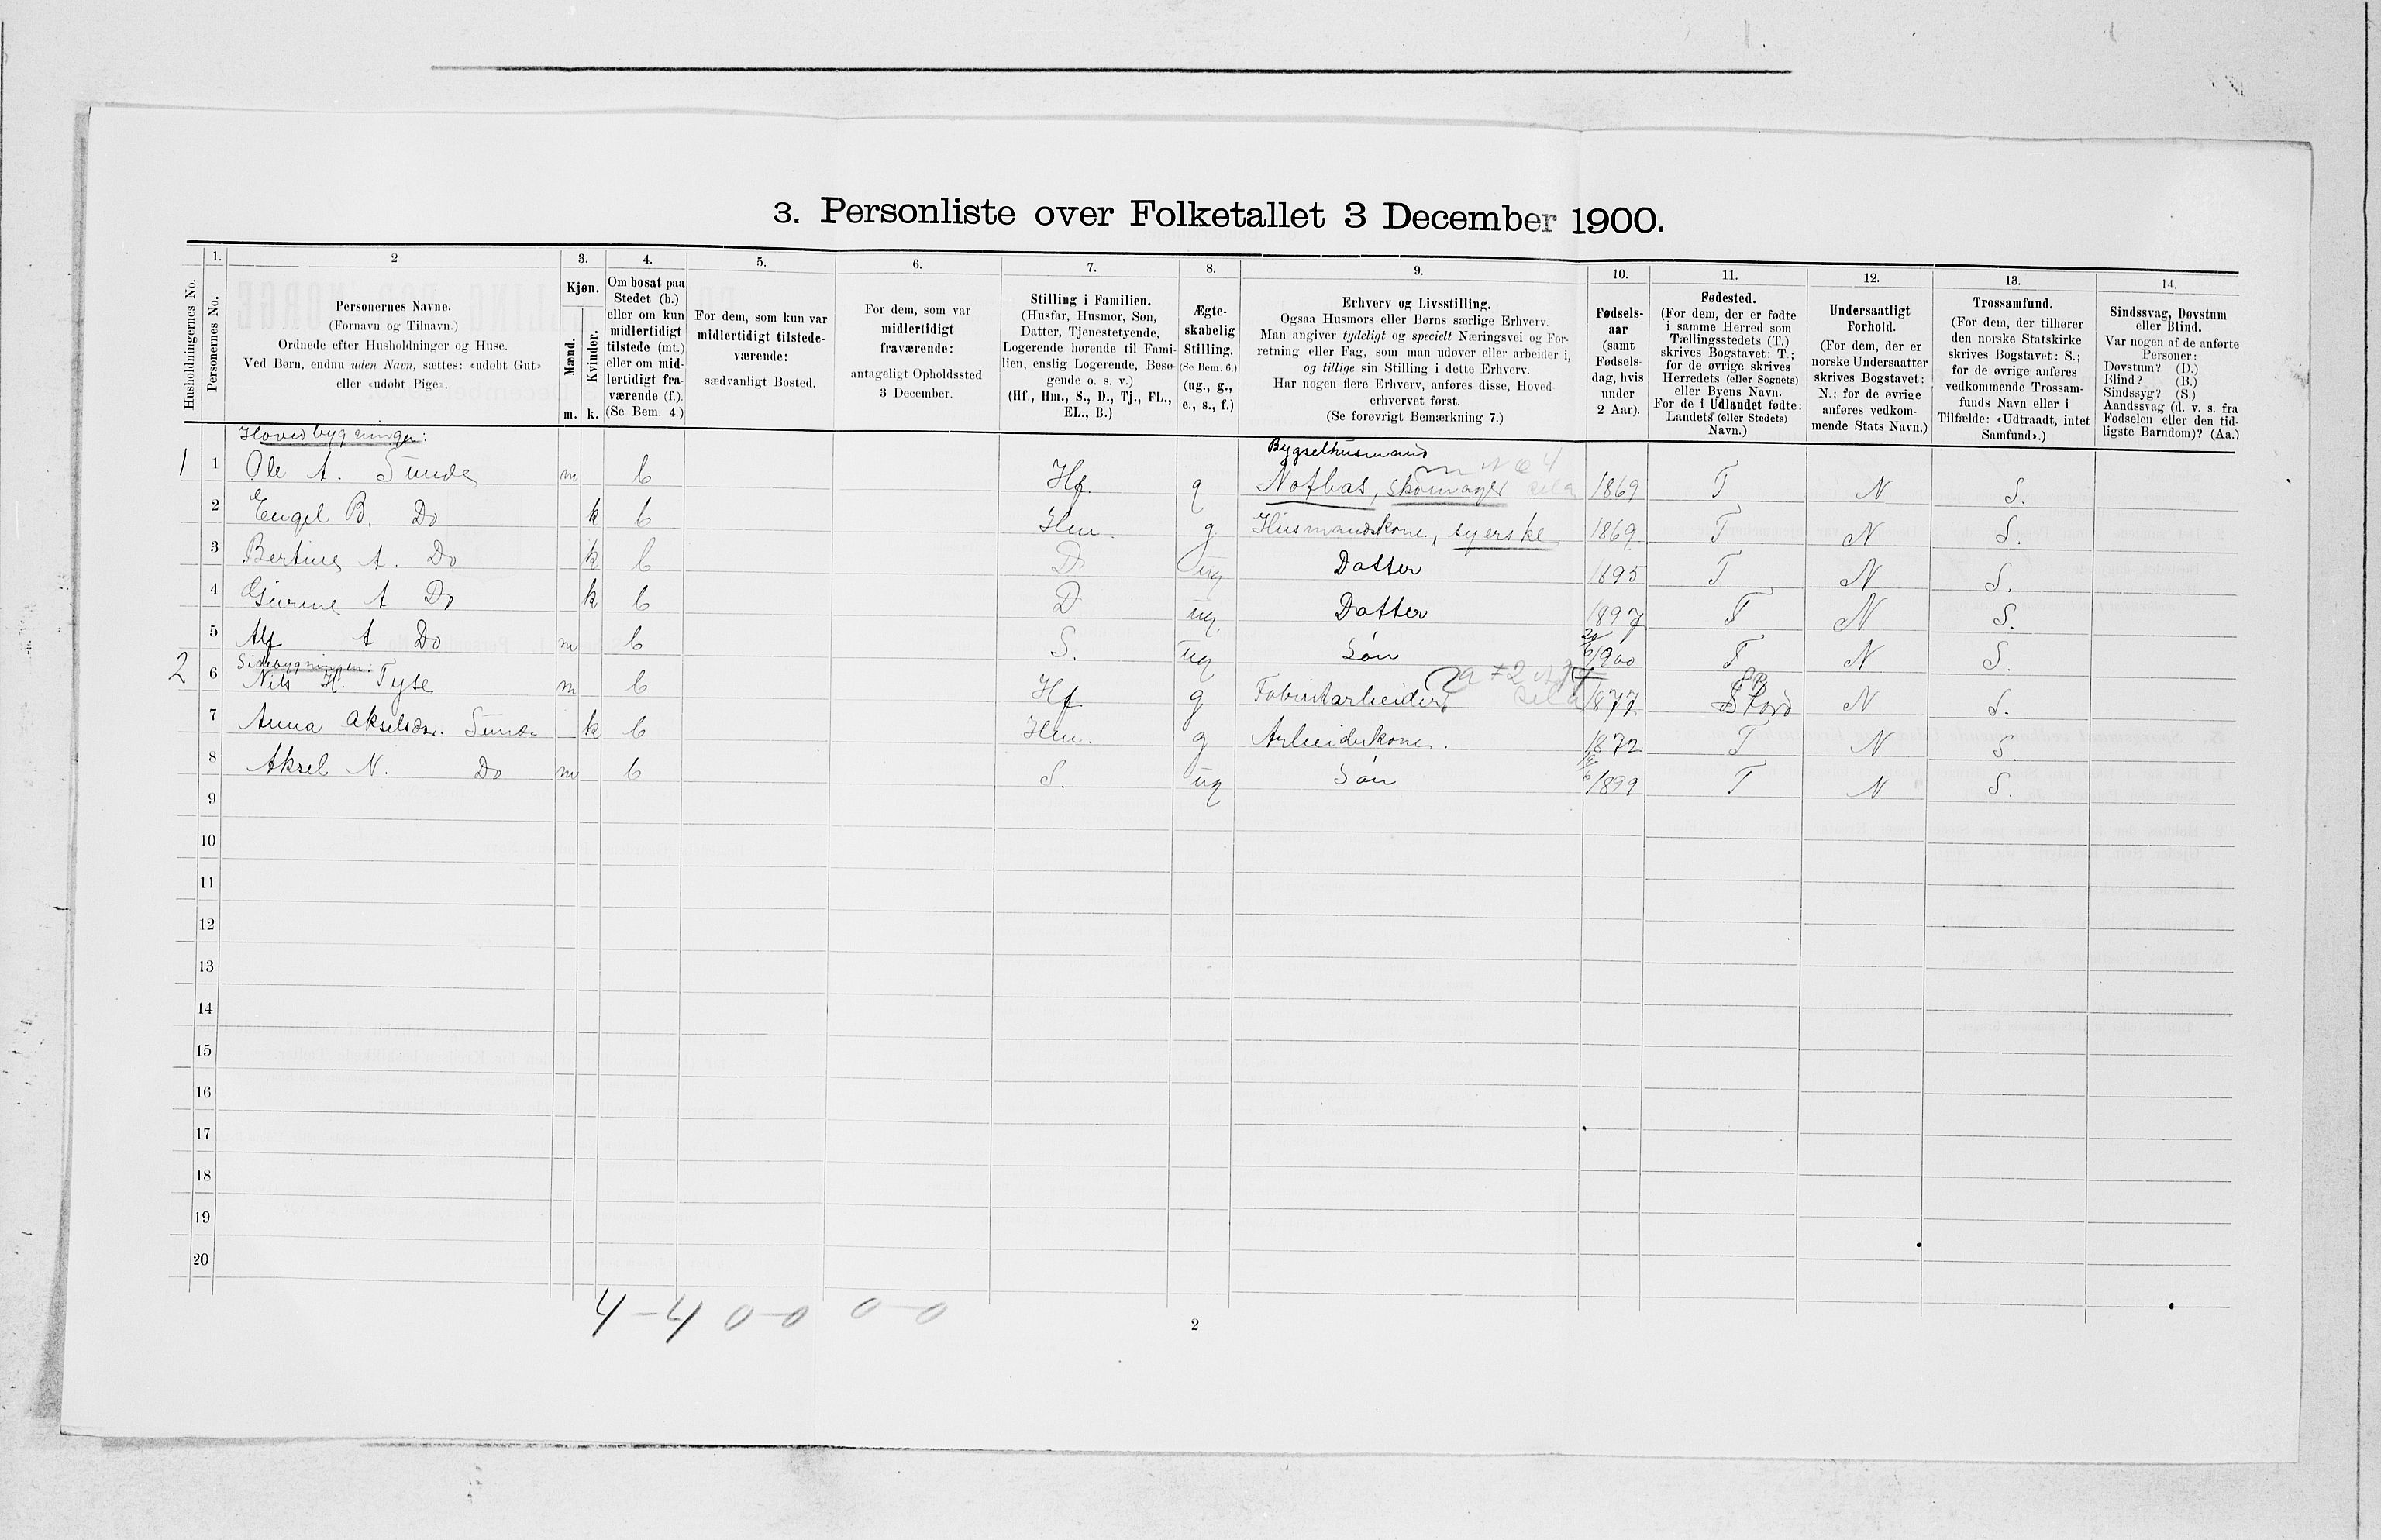 3. Personliste over Folketallet 3 December 1900.
Husholdningernes No.
1.
Personernes No.
2
Personernes Navne.
(Fornavn og Tilnavn.)
Ordnede efter Husholdninger og Huse.
Ved Børn, endnu uden Navn, sættes: «udøbt Gut»
eller «udøbt Pige».
3.
Kjøn.
Mænd.
Kvinder.
m. k.
4.
Om bosat paa
Stedet (b.)
eller om kun
midlertidigt
tilstede (mt.)
eller om mid-
lertidigt fra-
værende (f.).
(Se Bem. 4.)
5.
For dem, som kun var
midlertidigt tilstede-
værende:
sædvanligt Bosted.
6.
For dem, som var
midlertidigt
fraværende:
antageligt Opholdssted
3 December.
7.
Stilling i Familien.
(Husfar, Husmor, Søn,
Datter, Tjenestetyende,
Logerende hørende til Fami-
lien, enslig Logerende, Besø-
gende o. s. v.)
(Hf., Hm., S., D., Tj., FL.,
EL., B.)
8.
Ægte-
skabelig
Stilling.
(Se Bem. 6.)
(ug., g.,
e., s., f.)
9.
Erhverv og Livsstilling.
Ogsaa Husmors eller Børns særlige Erhverv.
Man angiver tydeligt og specielt Næringsvei og For-
retning eller Fag, som man udover eller arbeider i,
og tillige sin Stilling i dette Erhverv.
Har nogen flere Erhverv, anføres disse, Hoved-
erhvervet først.
(Se forøvrigt Bemærkning 7.)
10.
Fødsels-
aar
(samt
Fødsels-
dag, hvis
under
2 Aar).
11.
Fødested.
(For dem, der er fødte
i samme Herred som
Tællingsstedets (T.)
skrives Bogstavet: T.;
for de øvrige skrives
Herredets (eller Sognets)
eller Byens Navn.
For de i Udlandet fødte:
Landets (eller Stedets)
Navn.)
12.
Undersaatligt
Forhold.
(For dem, der er
norske Undersaatter
skrives Bogstavet:
N.; for de øvrige
anføres vedkom-
mende Stats Navn.)
13.
Trossamfund.
(For dem, der tilhører
den norske Statskirke
skrives Bogstavet: S.;
for de øvrige anføres
vedkommende Trossam-
funds Navn eller i
Tilfælde: «Udtraadt, intet
Samfund».)
14.
Sindssvag, Døvstum
eller Blind.
Var nogen af de anførte
Personer:
Døvstum? (D.)
Blind? (B.)
Sindssyg? (S.)
Aandssvag (d. v. s. fra
Fødselen eller den tid-
ligste Barndom)? (Aa.)
Hovedbygningen:
Bygselhusmand
1 1 Ole A. Sunde m b Hf g Notbas, skomager 1869 T N S.
2 Engel B. Do k b Hm. g Husmandskone, syerske 1869 T N S.
3 Bertine A. Do k b D ug Datter 1895 T N S.
4 Gurine A Do k b D ug. Datter 1897 T N S.
5 Alf A Do m b S. ug Søn 20/6 1900 T N S.
Sidebygningen:
2 6 Nils H. Tyse m b Hf g Fabrikarbeider 1877 Stord N S.
7 Anna Akselsdr. Sunde k b Hm. g Arbeiderkone. 1872 T N S.
8 Aksel N. Do m b S. ug Søn 1899 T N S.
9
10
11
12
13
14
15
16
17
18
19
20
4-4 0-0 0-0
2